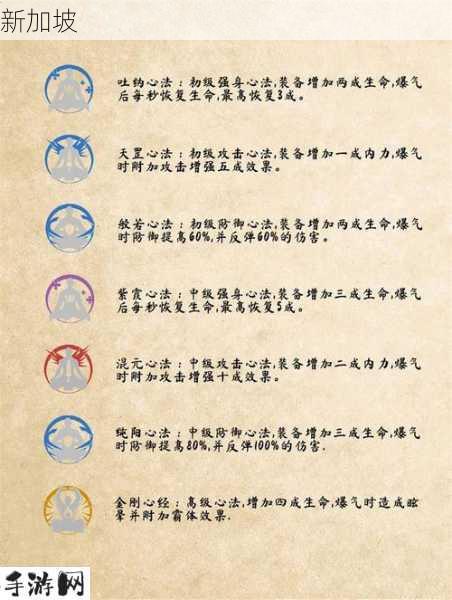 新加坡
吐纳心法：初级强身心法,装备增加两成生命,爆气
后每秒恢复生命,最高恢复3成。
天罡心法：初级攻击心法,装备增加一成内力,爆气
时附加攻击增强五成效果。
般若心法：初级防御心法,装备增加两成生命,爆气
时防御提高60%,并反弹60%的伤害。
紫霞心法：中级强身心法,装备增加三成生命,爆气
后每秒恢复生命,最高恢复5成。
混元心法：中级攻击心法,装备增加二成内力,爆气
时附加攻击增强十成效果。
纯阳心法：中级防御心法,装备增加三成生命,爆气
时防御提高80%,并反弹100%的伤害.
金刚心经：高级心法,增加四成生命,爆气时造成眩
晕并附加霸体效果.
手游网